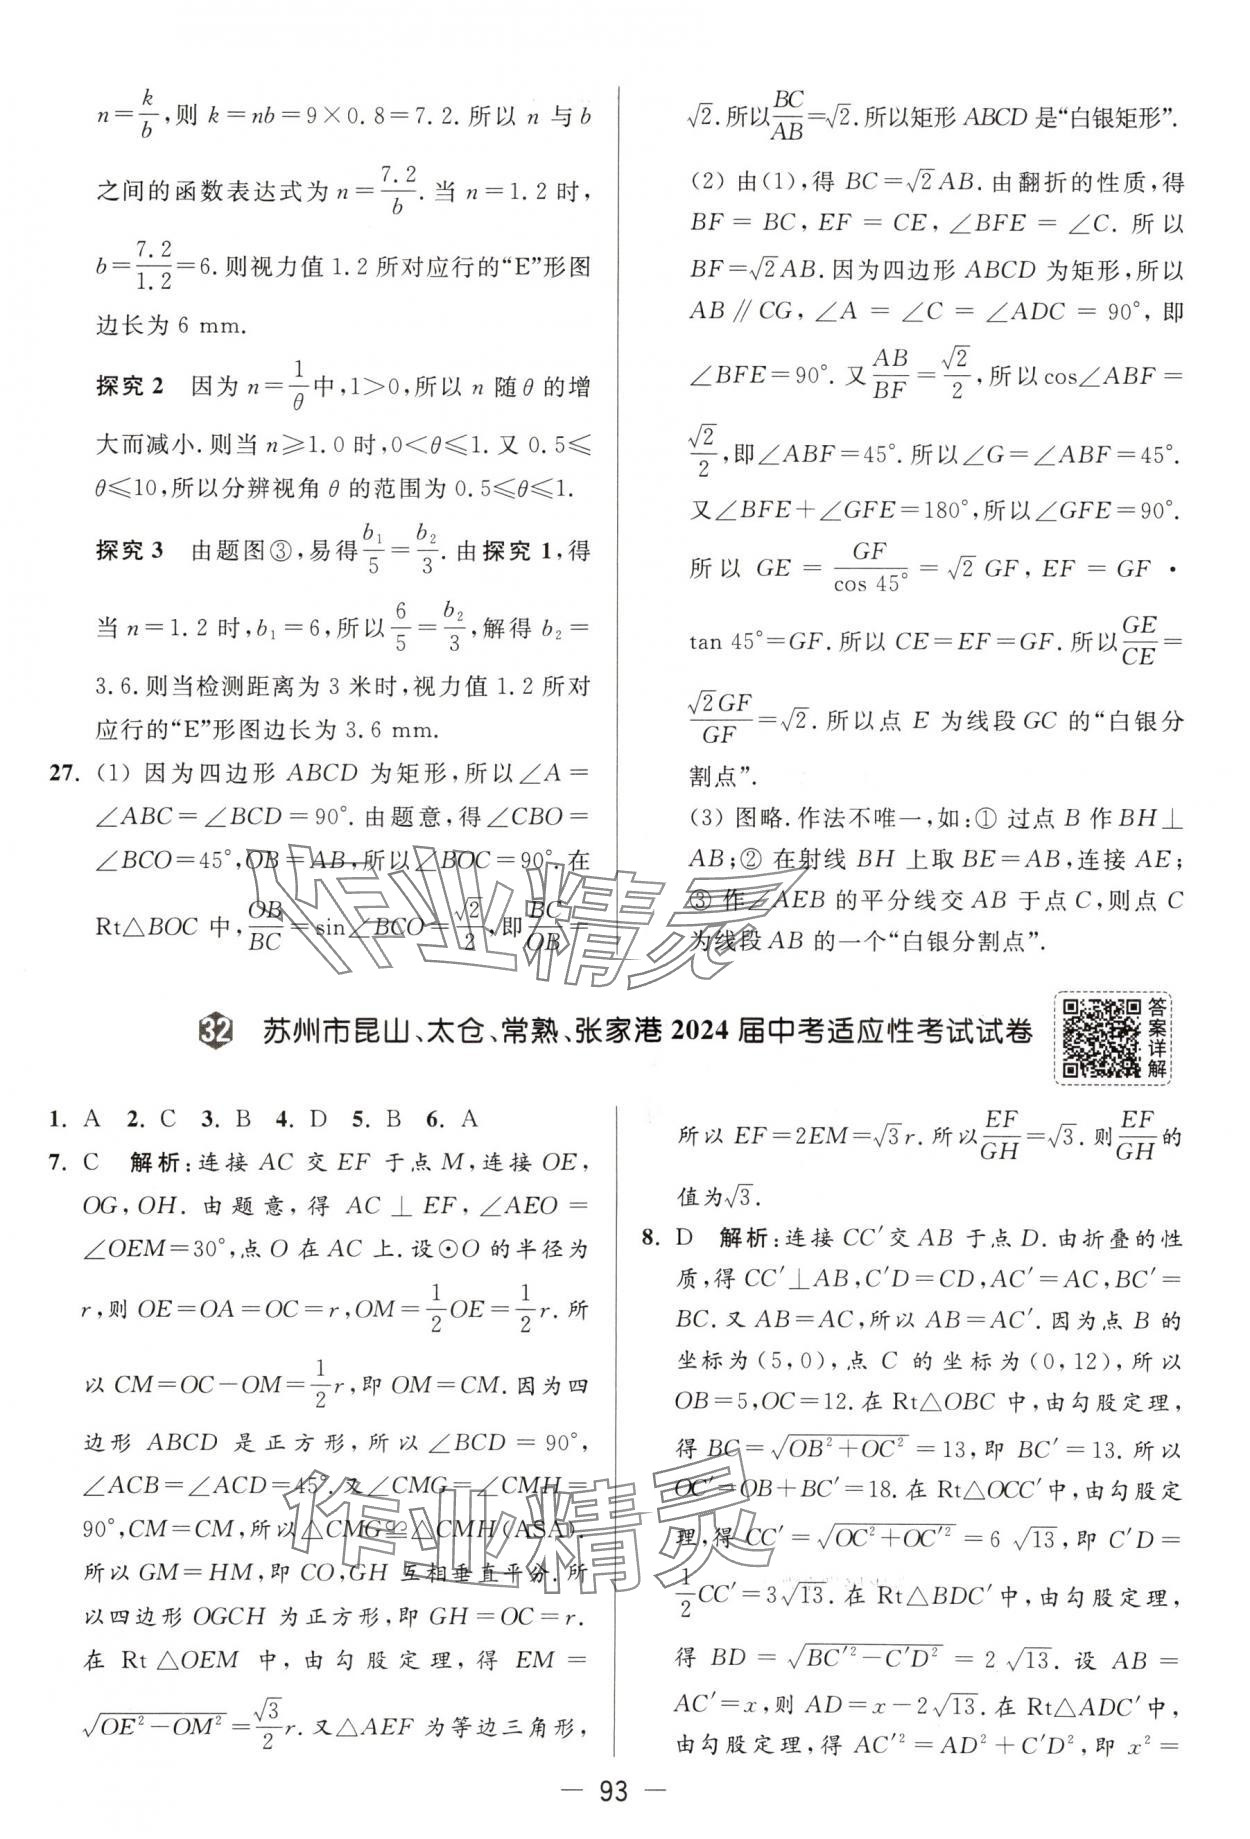 n=k/b,则 k=nb=9×0.8=7.2.所以 n 与 b
之间的函数表达式为 n=7.2/b.当 n=1.2 时,
b=7.2/1.2=6.则视力值 1.2 所对应行的“E”形图
边长为 6 mm.
探究 2 因为 n=1/θ中,1>0,所以 n 随 θ 的增
大而减小.则当 n≥1.0 时,0<θ≤1.又 0.5≤
θ≤10,所以分辨视角 θ 的范围为 0.5≤θ≤1.
探究 3 由题图③,易得b₁/5=b₂/3.由探究 1,得
当 n=1.2 时,b₁=6,所以6/5=b₂/3,解得 b₂=
3.6.则当检测距离为 3 米时,视力值 1.2 所对
应行的“E”形图边长为 3.6 mm.
27. (1) 因为四边形 ABCD 为矩形,所以∠A=
∠ABC=∠BCD=90°.由题意,得∠CBO=
∠BCO=45°,OB=AB,所以∠BOC=90°.在
Rt△BOC 中,OB/BC=sin∠BCO=√2/2,即BC/OB=
√2.所以BC/AB=√2.所以矩形 ABCD 是“白银矩形”.
(2) 由(1),得 BC=√2AB.由翻折的性质,得
BF=BC,EF=CE,∠BFE=∠C.所以
BF=√2AB.因为四边形 ABCD 为矩形,所以
AB∥CG,∠A=∠C=∠ADC=90°,即
∠BFE=90°.又AB/BF=√2/2,所以cos∠ABF=
√2/2,即∠ABF=45°.所以∠G=∠ABF=45°.
又∠BFE+∠GFE=180°,所以∠GFE=90°.
所以 GE=GF/cos 45°=√2 GF,EF=GF·
tan 45°=GF.所以 CE=EF=GF.所以GE/CE=
√2GF/GF=√2.所以点 E 为线段 GC 的“白银分
割点”.
(3) 图略.作法不唯一,如:① 过点 B 作 BH⊥
AB;② 在射线 BH 上取 BE=AB,连接 AE;
③ 作∠AEB 的平分线交 AB 于点 C,则点 C
为线段 AB 的一个“白银分割点”.
32 苏州市昆山、太仓、常熟、张家港 2024 届中考适应性考试试卷
答案详解
1. A 2. C 3. B 4. D 5. B 6. A
7. C 解析:连接 AC 交 EF 于点 M,连接 OE,
OG,OH.由题意,得 AC⊥EF,∠AEO=
∠OEM=30°,点 O 在 AC 上.设⊙O 的半径为
r,则 OE=OA=OC=r,OM=1/2OE=1/2r.所
以 CM=OC-OM=1/2r,即 OM=CM.因为四
边形 ABCD 是正方形,所以∠BCD=90°,
∠ACB=∠ACD=45°.又∠CMG=∠CMH=
90°,CM=CM,所以△CMG≌△CMH(ASA).
所以 GM=HM,即 CO,GH 互相垂直平分.所
以四边形 OGCH 为正方形,即 GH=OC=r.
在 Rt△OEM 中,由勾股定理,得 EM=
√(OE²-OM²)=√3/2r.又△AEF 为等边三角形,
所以 EF=2EM=√3r.所以EF/GH=√3.则EF/GH的
值为√3.
8. D 解析:连接 CC′交 AB 于点 D.由折叠的性
质,得 CC′⊥AB,C′D=CD,AC′=AC,BC′=
BC.又 AB=AC,所以 AB=AC′.因为点 B 的
坐标为(5,0),点 C 的坐标为(0,12),所以
OB=5,OC=12.在 Rt△OBC 中,由勾股定理,
得 BC=√(OB²+OC²)=13,即 BC′=13.所以
OC′=OB+BC′=18.在 Rt△OCC′中,由勾股定
理,得 CC′=√(OC²+OC′²)=6√13,即 C′D=
1/2CC′=3√13.在 Rt△BDC′中,由勾股定理,
得 BD=√(BC′²-C′D²)=2√13.设 AB=
AC′=x,则 AD=x-2√13.在 Rt△ADC′中,
由勾股定理,得 AC′²=AD²+C′D²,即 x²=
— 93 —
作业精灵
作业精灵